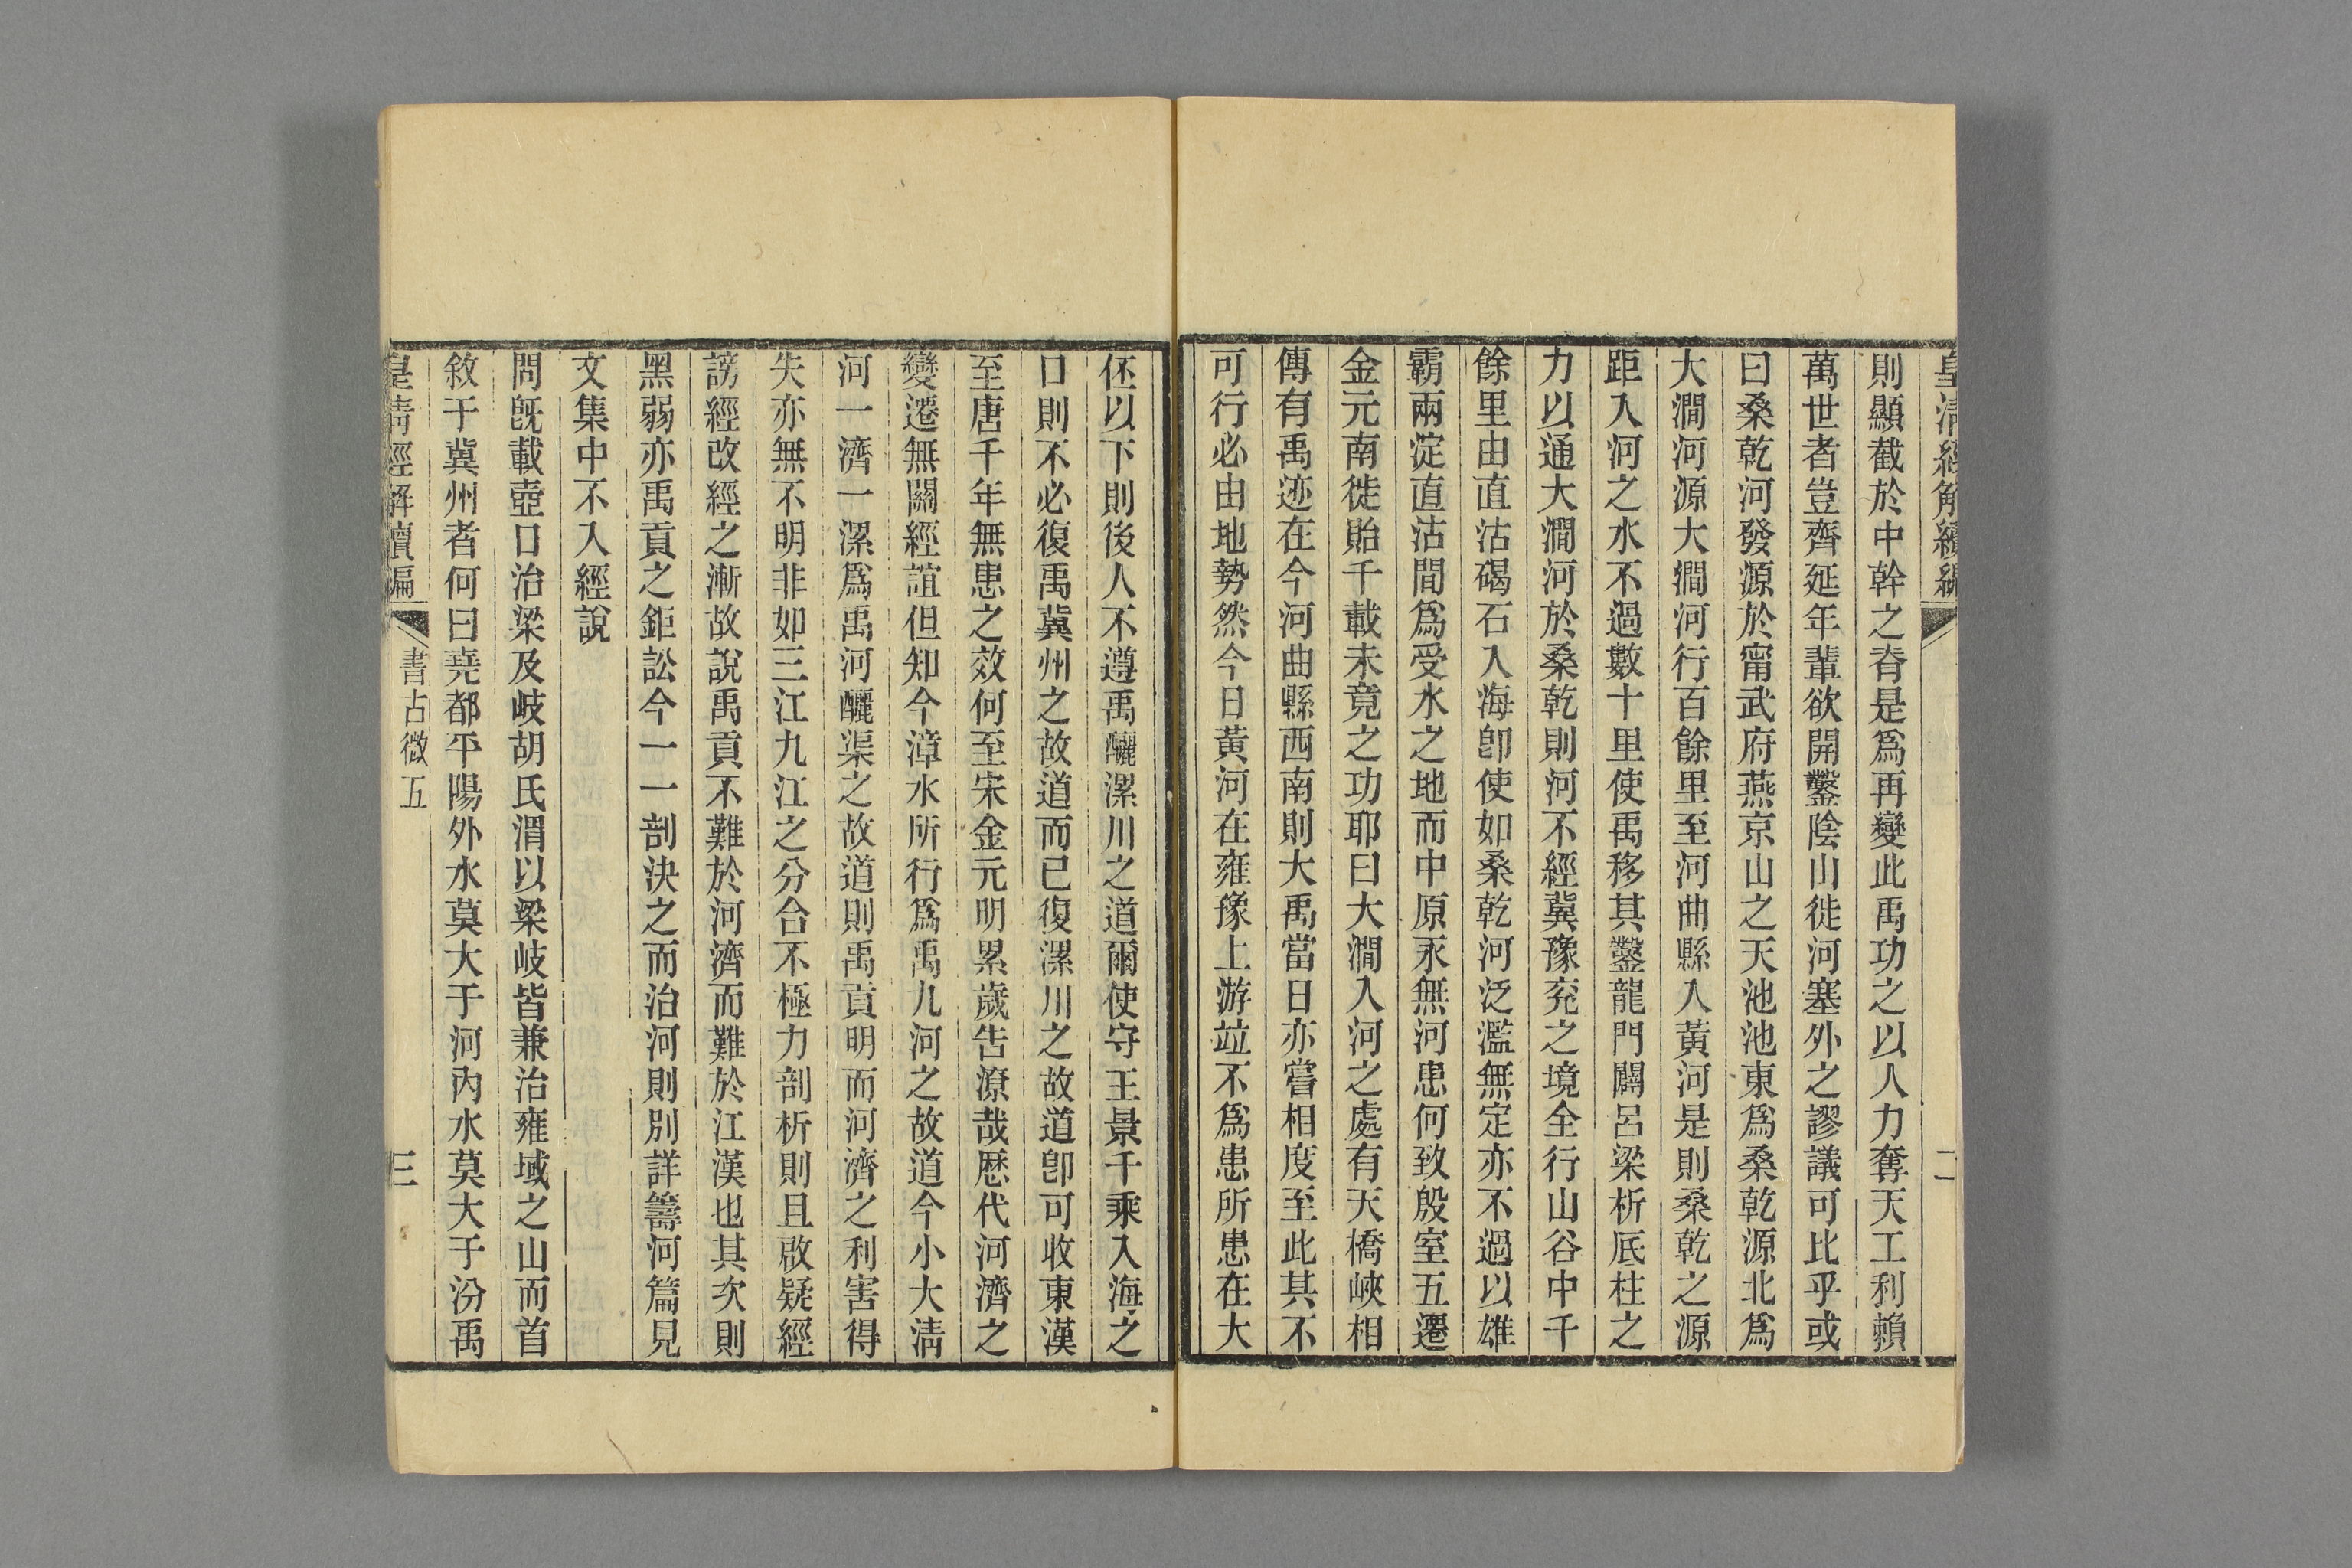 皇清經解續編
二
則顯截於中幹之脊是爲再變此禹功之以人力奪天工利賴
萬世者豈齊延年輩欲開鑿陰山徙河塞外之謬議可比乎或
曰桑乾河發源於甯武府燕京山之天池池東爲桑乾源北爲
大澗河源大澗河行百餘里至河曲縣入黃河是則桑乾之源
距入河之水不過數十里使禹移其鑿龍門闢呂梁析厎柱之
力以通大澗河於桑乾則河不經冀豫兗之境全行山谷中千
餘里由直沽碣石入海卽使如桑乾河泛濫無定亦不過以雄
霸兩淀直沽間爲受水之地而中原永無河患何致殷室五遷
金元南徙貽千載未竟之功耶曰大澗入河之處有天橋峽相
傳有禹迹在今河曲縣西南則大禹當日亦嘗相度至此其不
可行必由地勢然今日黃河在雍豫上游竝不爲患所患在大
伾以下則後人不遵禹釃漯川之道爾使守王景千乘入海之
口則不必復禹冀州之故道而已復漯川之故道卽可收東漢
至唐千年無患之效何至宋金元明累歲告潦哉歷代河濟之
變遷無關經誼但知今漳水所行爲禹九河之故道今小大淸
河一濟一漯爲禹河釃渠之故道則禹貢明而河濟之利害得
失亦無不明非如三江九江之分合不極力剖析則且啟疑經
謗經改經之漸故說禹貢不難於河濟而難於江漢也其次則
黑弱亦禹貢之鉅訟今一一剖決之而治河則別詳籌河篇見
文集中不入經說
問旣載壺口治梁及岐胡氏渭以梁岐皆兼治雍域之山而首
敘于冀州者何曰堯都平陽外水莫大于河內水莫大于汾禹
皇淸經解續編
書古微五
三